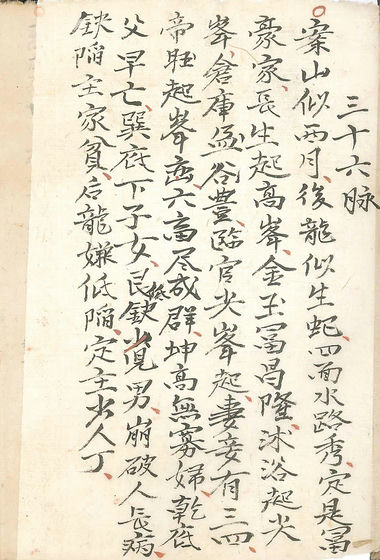 三十六脉
案山似两月後龍似生蛇四面水路秀定是冨
豪家長生起高峯金玉冨昌隆沭浴起尖
峯倉庫盈谷豊臨官尖峯起妻妾有三四
帝旺起峯巒六畜尽成群坤高無寡婦乾底
父早亡巽底下子女艮低鈌少児男崩破人長病
鈌陥主家貧后龍嫌低陥定主少人丁